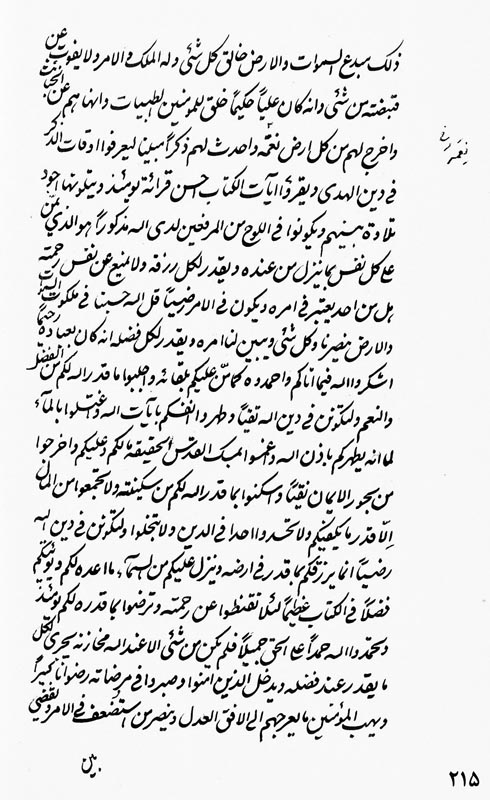 ذلك مبدع السموات والارض خالق كل شئ وله الملك والامر ولا يفوت عن
قبضته من شئ وانه كان علياً حكيماً خلق للمؤمنين الطيبات وانهاهم عن الخبائث
واخرج لهم من كل ارض نعمة واحدث لهم ذكراً مبينا ليعرفوا اوقات الذكر
نعمه
في دين الهدى ويقرؤا آيات الكتاب احسن قرائة يومئذ ويتلونها اجود
تلاوة بينهم ويكونوا في اللوح من المرفعين لدى الله مذكوراً هو الذي من
على كل نفس بما ينزل من عنده ويقدر لكل رزقه ولا يمنع عن نفس رحمته
هل من احد يعتبر في امره ويكون في الامر رضيّاً قل الله حسبنا في ملكوت السماء
والارض بنصرنا وكل شئ ويبين لنا امره ويقدر لكل فضله انه كان بعباده رحيماً
اشكروا الله فيما اتاكم واحمدوه كما من عليكم بلقائه واجلبوا ما قدر الله لكم من الفضل
والنعم ولتكونن في دين الله تقيّاً وطهروا انفسكم بآيات الله واغتسلوا بالماء
لما انه يطهركم باذن الله واغمسوا القدس الحقيقة مالكم وعليكم واخرجوا
من بحور الايمان نقيّاً واسكنوا بما قدر الله لكم من سكينته ولا تجمعوا من المال
الّا قدر ما يكفيكم ولا تحسدوا احدا في الدين ولا تبخلوا ولتكونن في دين الله
رضيّاً انما يرزقكم بما قدر في ارضه وينزل عليكم من السماء ما اعده لكم ويؤتيكم
فضلاً في الكتاب عظيماً لئلا تقنطوا عن رحمته وترضوا بما قدره لكم يومئذ
وتحمدوا الله حمداً على الحق جميلاً فلم يكن من شئ الا عند الله مخازنه يجرى لكل
ما يقدر عند فضله ويدخل الذين آمنوا وصبروا في مرضاته رضوانا كبيراً
ويهب المؤمنين ما يعرجهم الى الافق العدل وينصر من استضعف في الامر ويقضي
بين
٢١٥